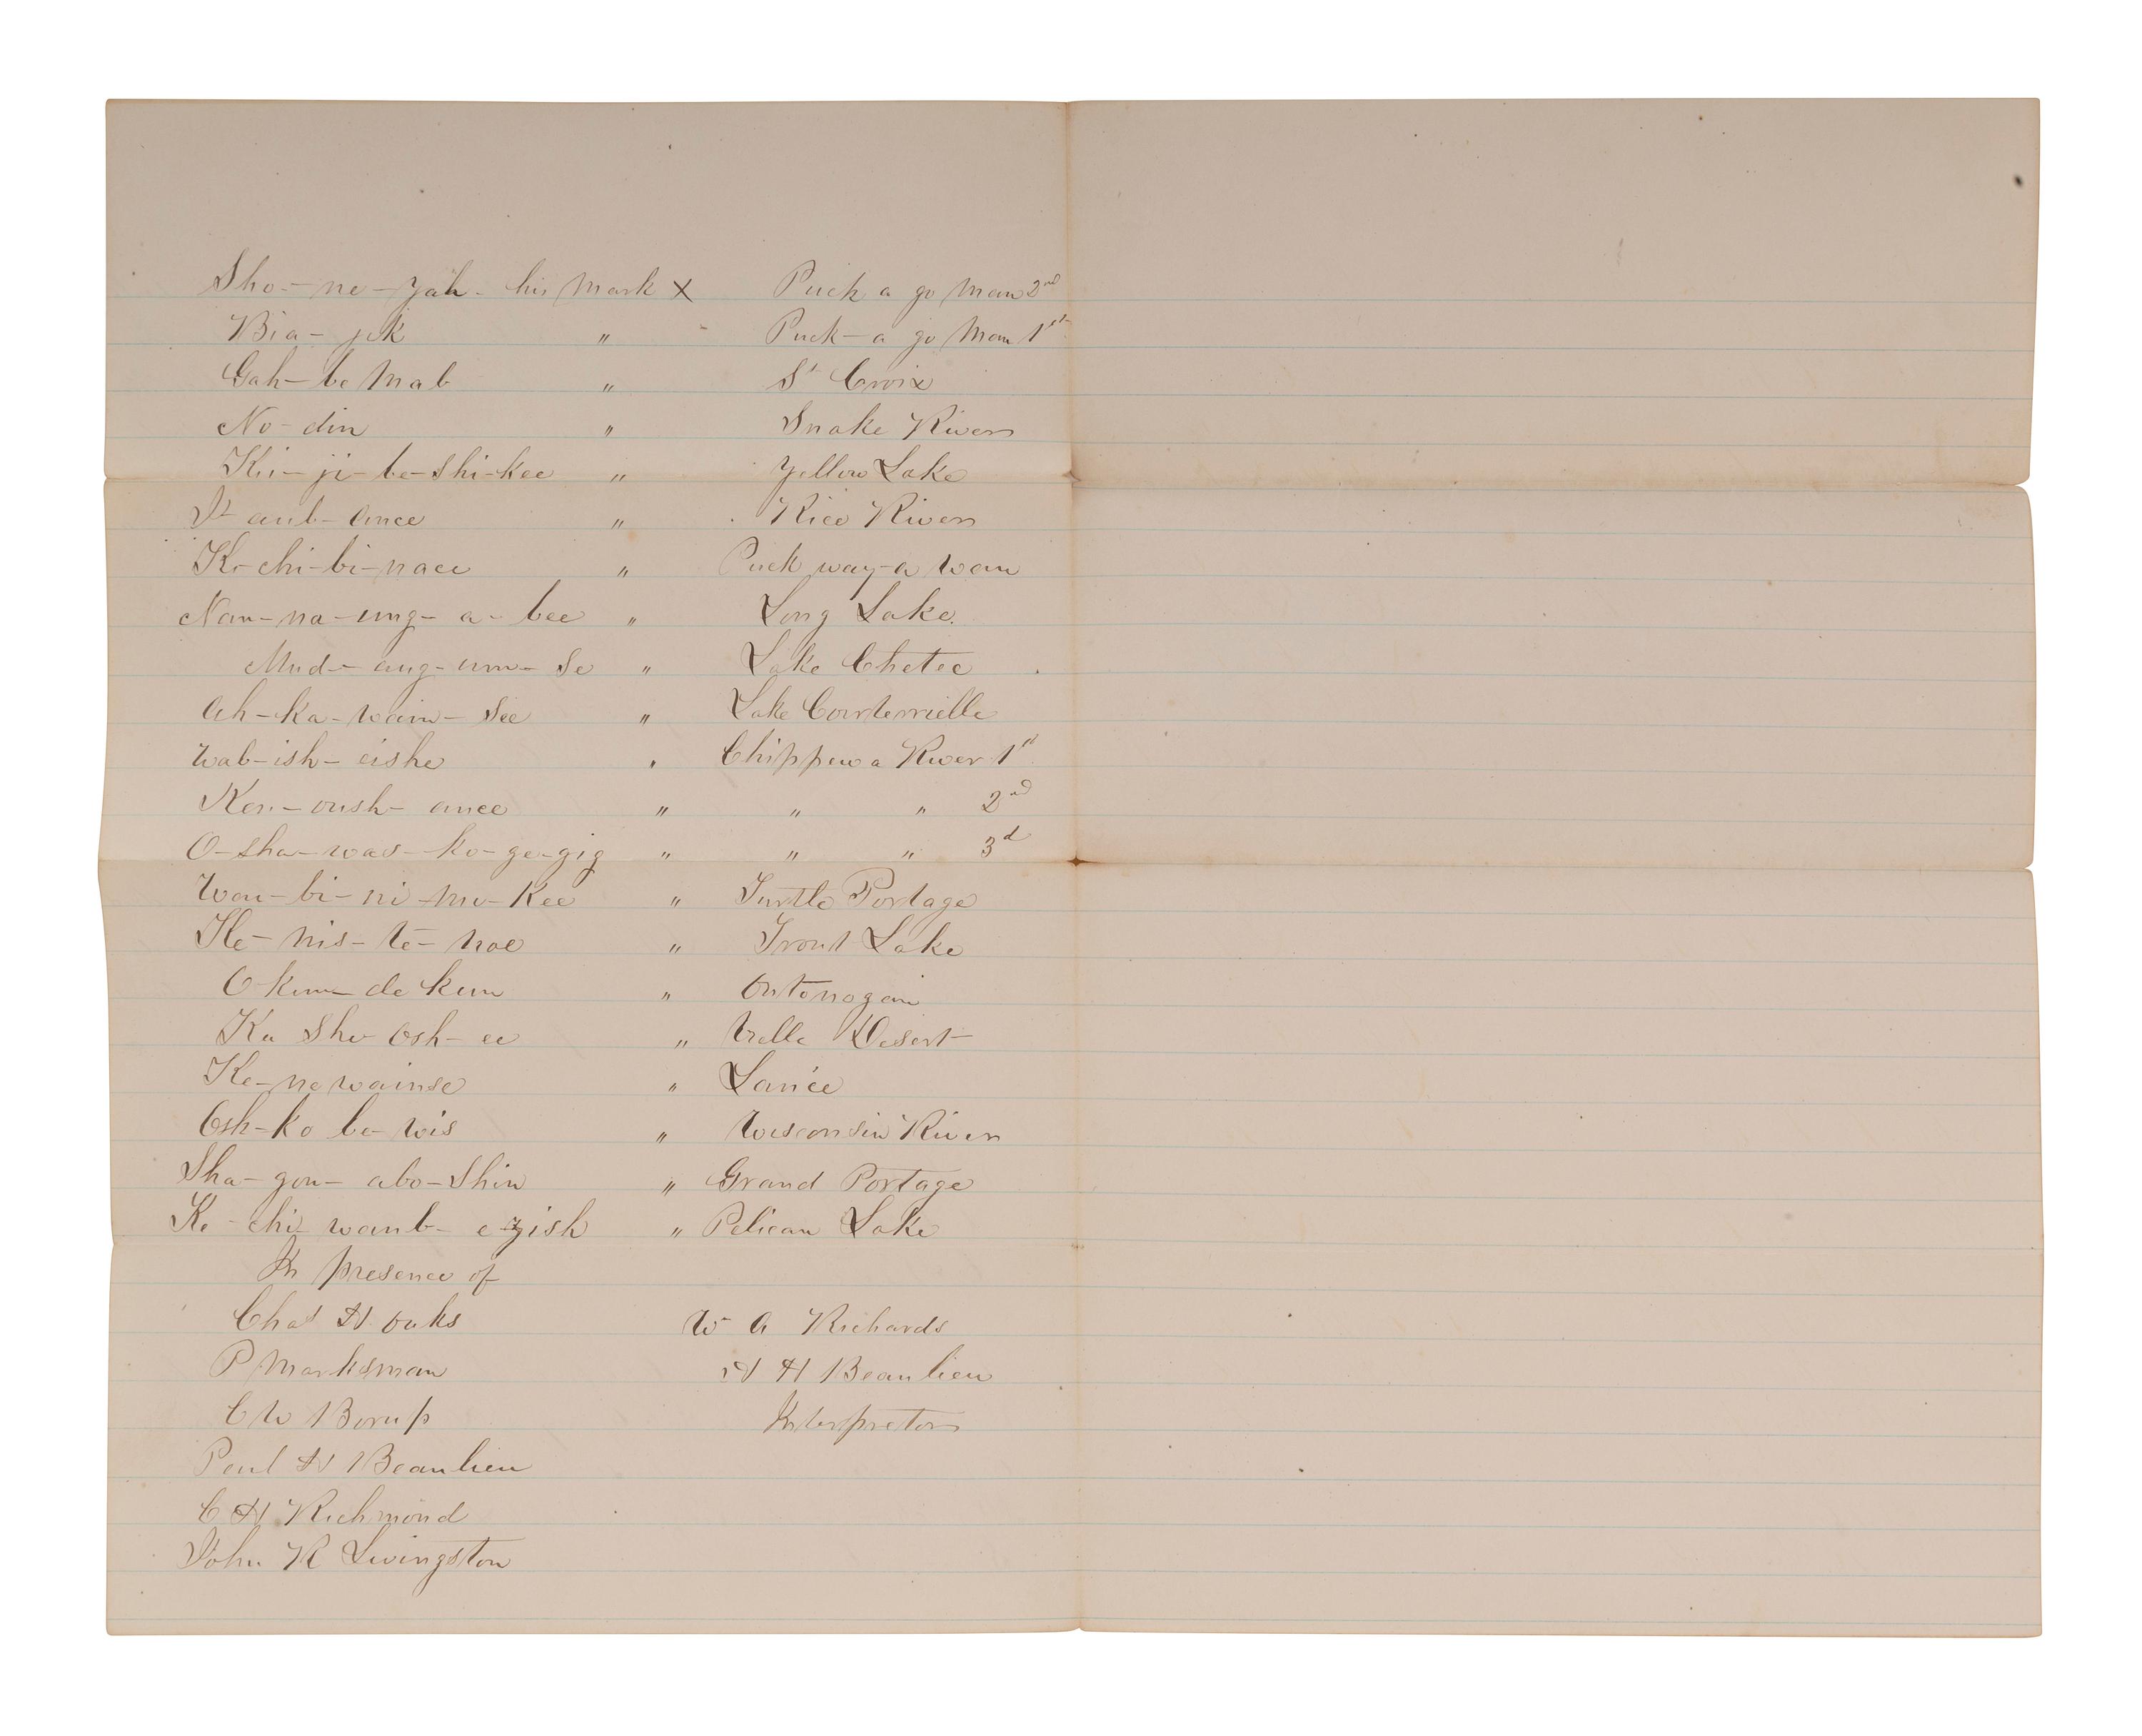 Sho-ne-yah- his mark X Puck a go mon 2nd
Bia-jek " Puck-a go mon 1st
Gah-be mab " St Croix
No-din " Snake River
Kii-ji-be-shi-kee " Yellow Lake
aub-ance " Rice River
Ke-chi-bi-nace " Puck way-a wan
Nan-na-ung-a-bee " Long Lake.
Mud-aug-um-se " Lake Chetec
Ah-ka-wain-see " Lake Courterrielle
Wab-ish-eishe " Chippewa River 1st
Ken-oush-ance " " " 2nd
O-sha-was-ko-ge-gig " " " 3d
Wau-bi-ni-me-kee " Turtle Portage
He-nis-te-noe " Trout Lake
O kun-de kun " Ontonogan
Ka She Osh-ee " Vielle Desert
Ke-ne wainse " Lance
Osh-ko be-wis " Wisconsin River
Sha-gon-abo-Shin " Grand Portage
Ke-chi waub-e-zish " Pelican Lake
In presence of
Chas H oaks W A Richards
P Marksman H H Beaulieu
C W Borup Interpretors
Paul H Beaulieu
C H Richmond
John R Livingston